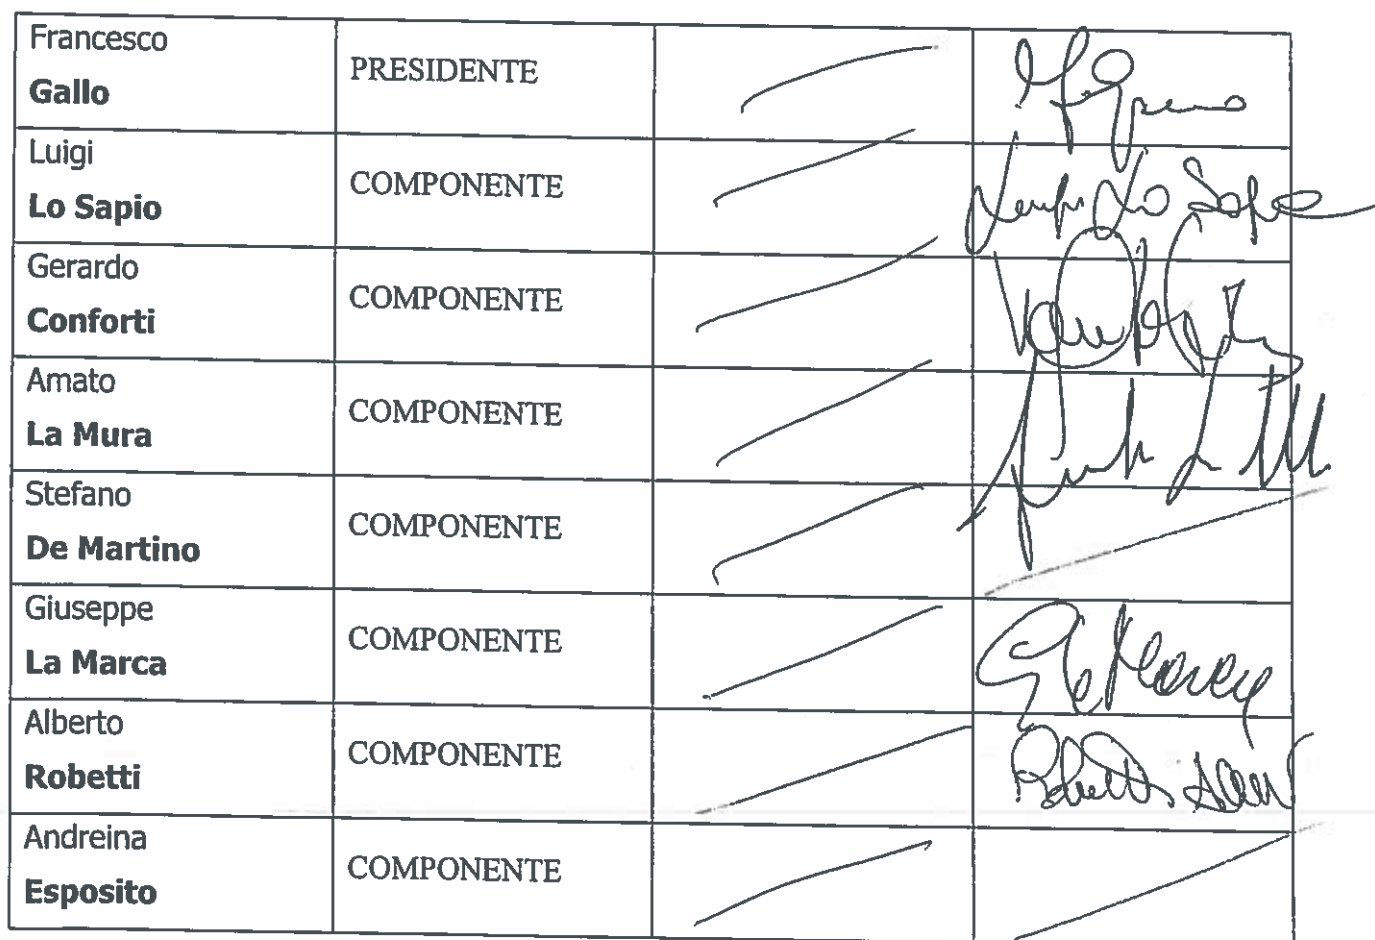 Francesco
Gallo
PRESIDENTE
Luigi
Lo Sapio
COMPONENTE
Luigi Lo Sapio
Gerardo
Conforti
COMPONENTE
Amato
La Mura
COMPONENTE
Stefano
De Martino
COMPONENTE
Giuseppe
La Marca
COMPONENTE
Alberto
Robetti
COMPONENTE
Andreina
Esposito
COMPONENTE